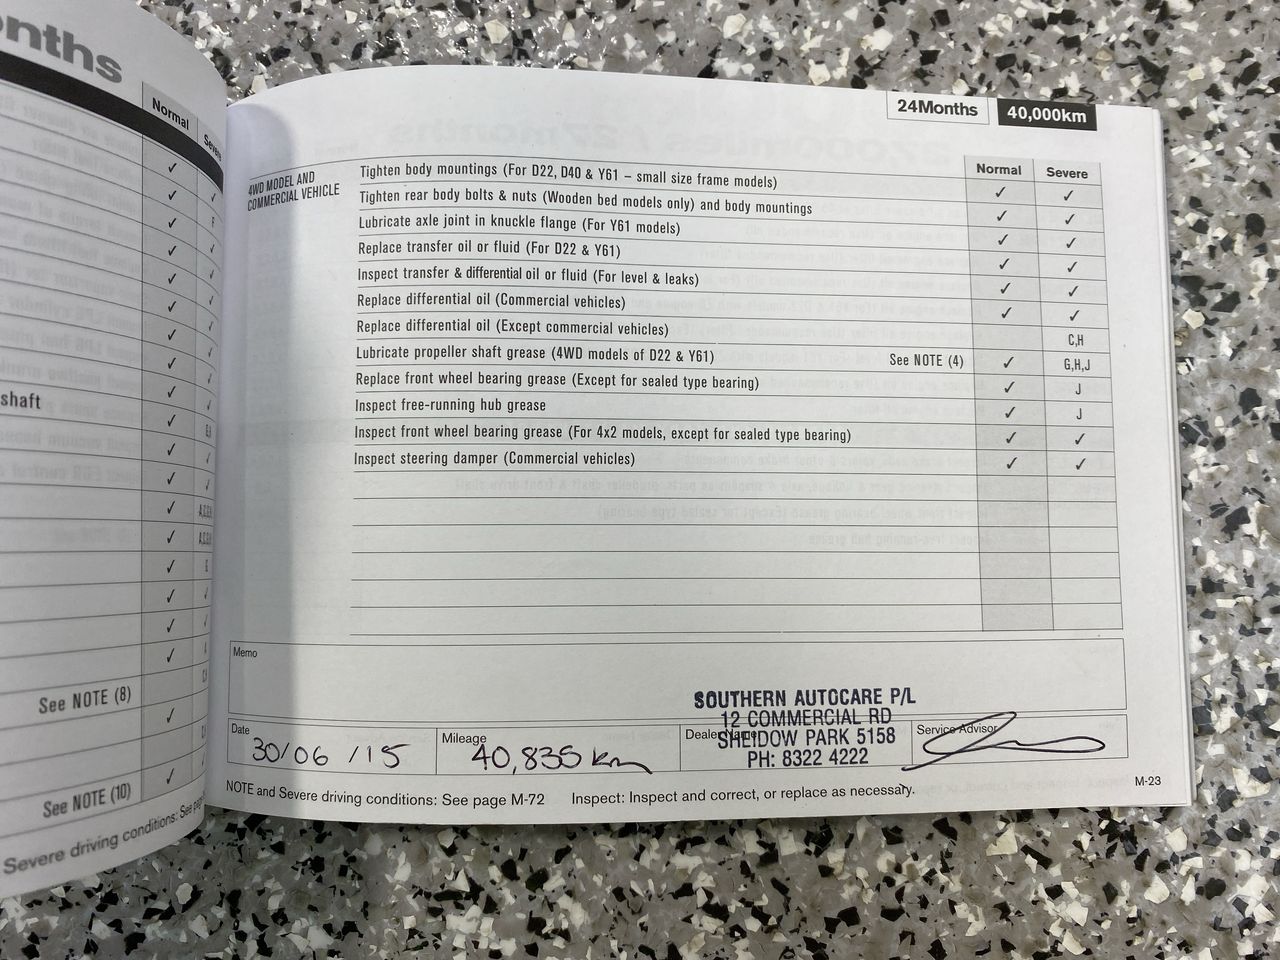 nths
Normal
✓
✓ ✓
✓ F
✓ ✓
✓ ✓
✓ ✓
✓ ✓
✓ ✓
shaft ✓ ✓
✓
✓ ✓
✓ ✓
✓
✓
✓ E
✓ ✓
✓ ✓
✓
See NOTE (8)
✓
See NOTE (10) ✓
Severe driving conditions: See
24Months 40,000km
Normal Severe
4WD MODEL AND
COMMERCIAL VEHICLE
Tighten body mountings (For D22, D40 & Y61 – small size frame models) ✓ ✓
Tighten rear body bolts & nuts (Wooden bed models only) and body mountings ✓ ✓
Lubricate axle joint in knuckle flange (For Y61 models) ✓ ✓
Replace transfer oil or fluid (For D22 & Y61) ✓ ✓
Inspect transfer & differential oil or fluid (For level & leaks) ✓ ✓
Replace differential oil (Commercial vehicles) ✓ ✓
Replace differential oil (Except commercial vehicles) C,H
Lubricate propeller shaft grease (4WD models of D22 & Y61) See NOTE (4) ✓ G,H,J
Replace front wheel bearing grease (Except for sealed type bearing) ✓ J
Inspect free-running hub grease ✓ J
Inspect front wheel bearing grease (For 4x2 models, except for sealed type bearing) ✓ ✓
Inspect steering damper (Commercial vehicles) ✓ ✓
Memo
Date
30/06/15
Mileage
40,835 km
Dealer Name
SOUTHERN AUTOCARE P/L
12 COMMERCIAL RD
SHEIDOW PARK 5158
PH: 8322 4222
Service Advisor
NOTE and Severe driving conditions: See page M-72 Inspect: Inspect and correct, or replace as necessary.
M-23